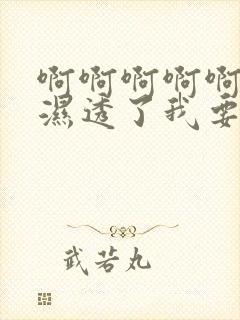 啊啊啊啊啊
濕透了我要
武若丸